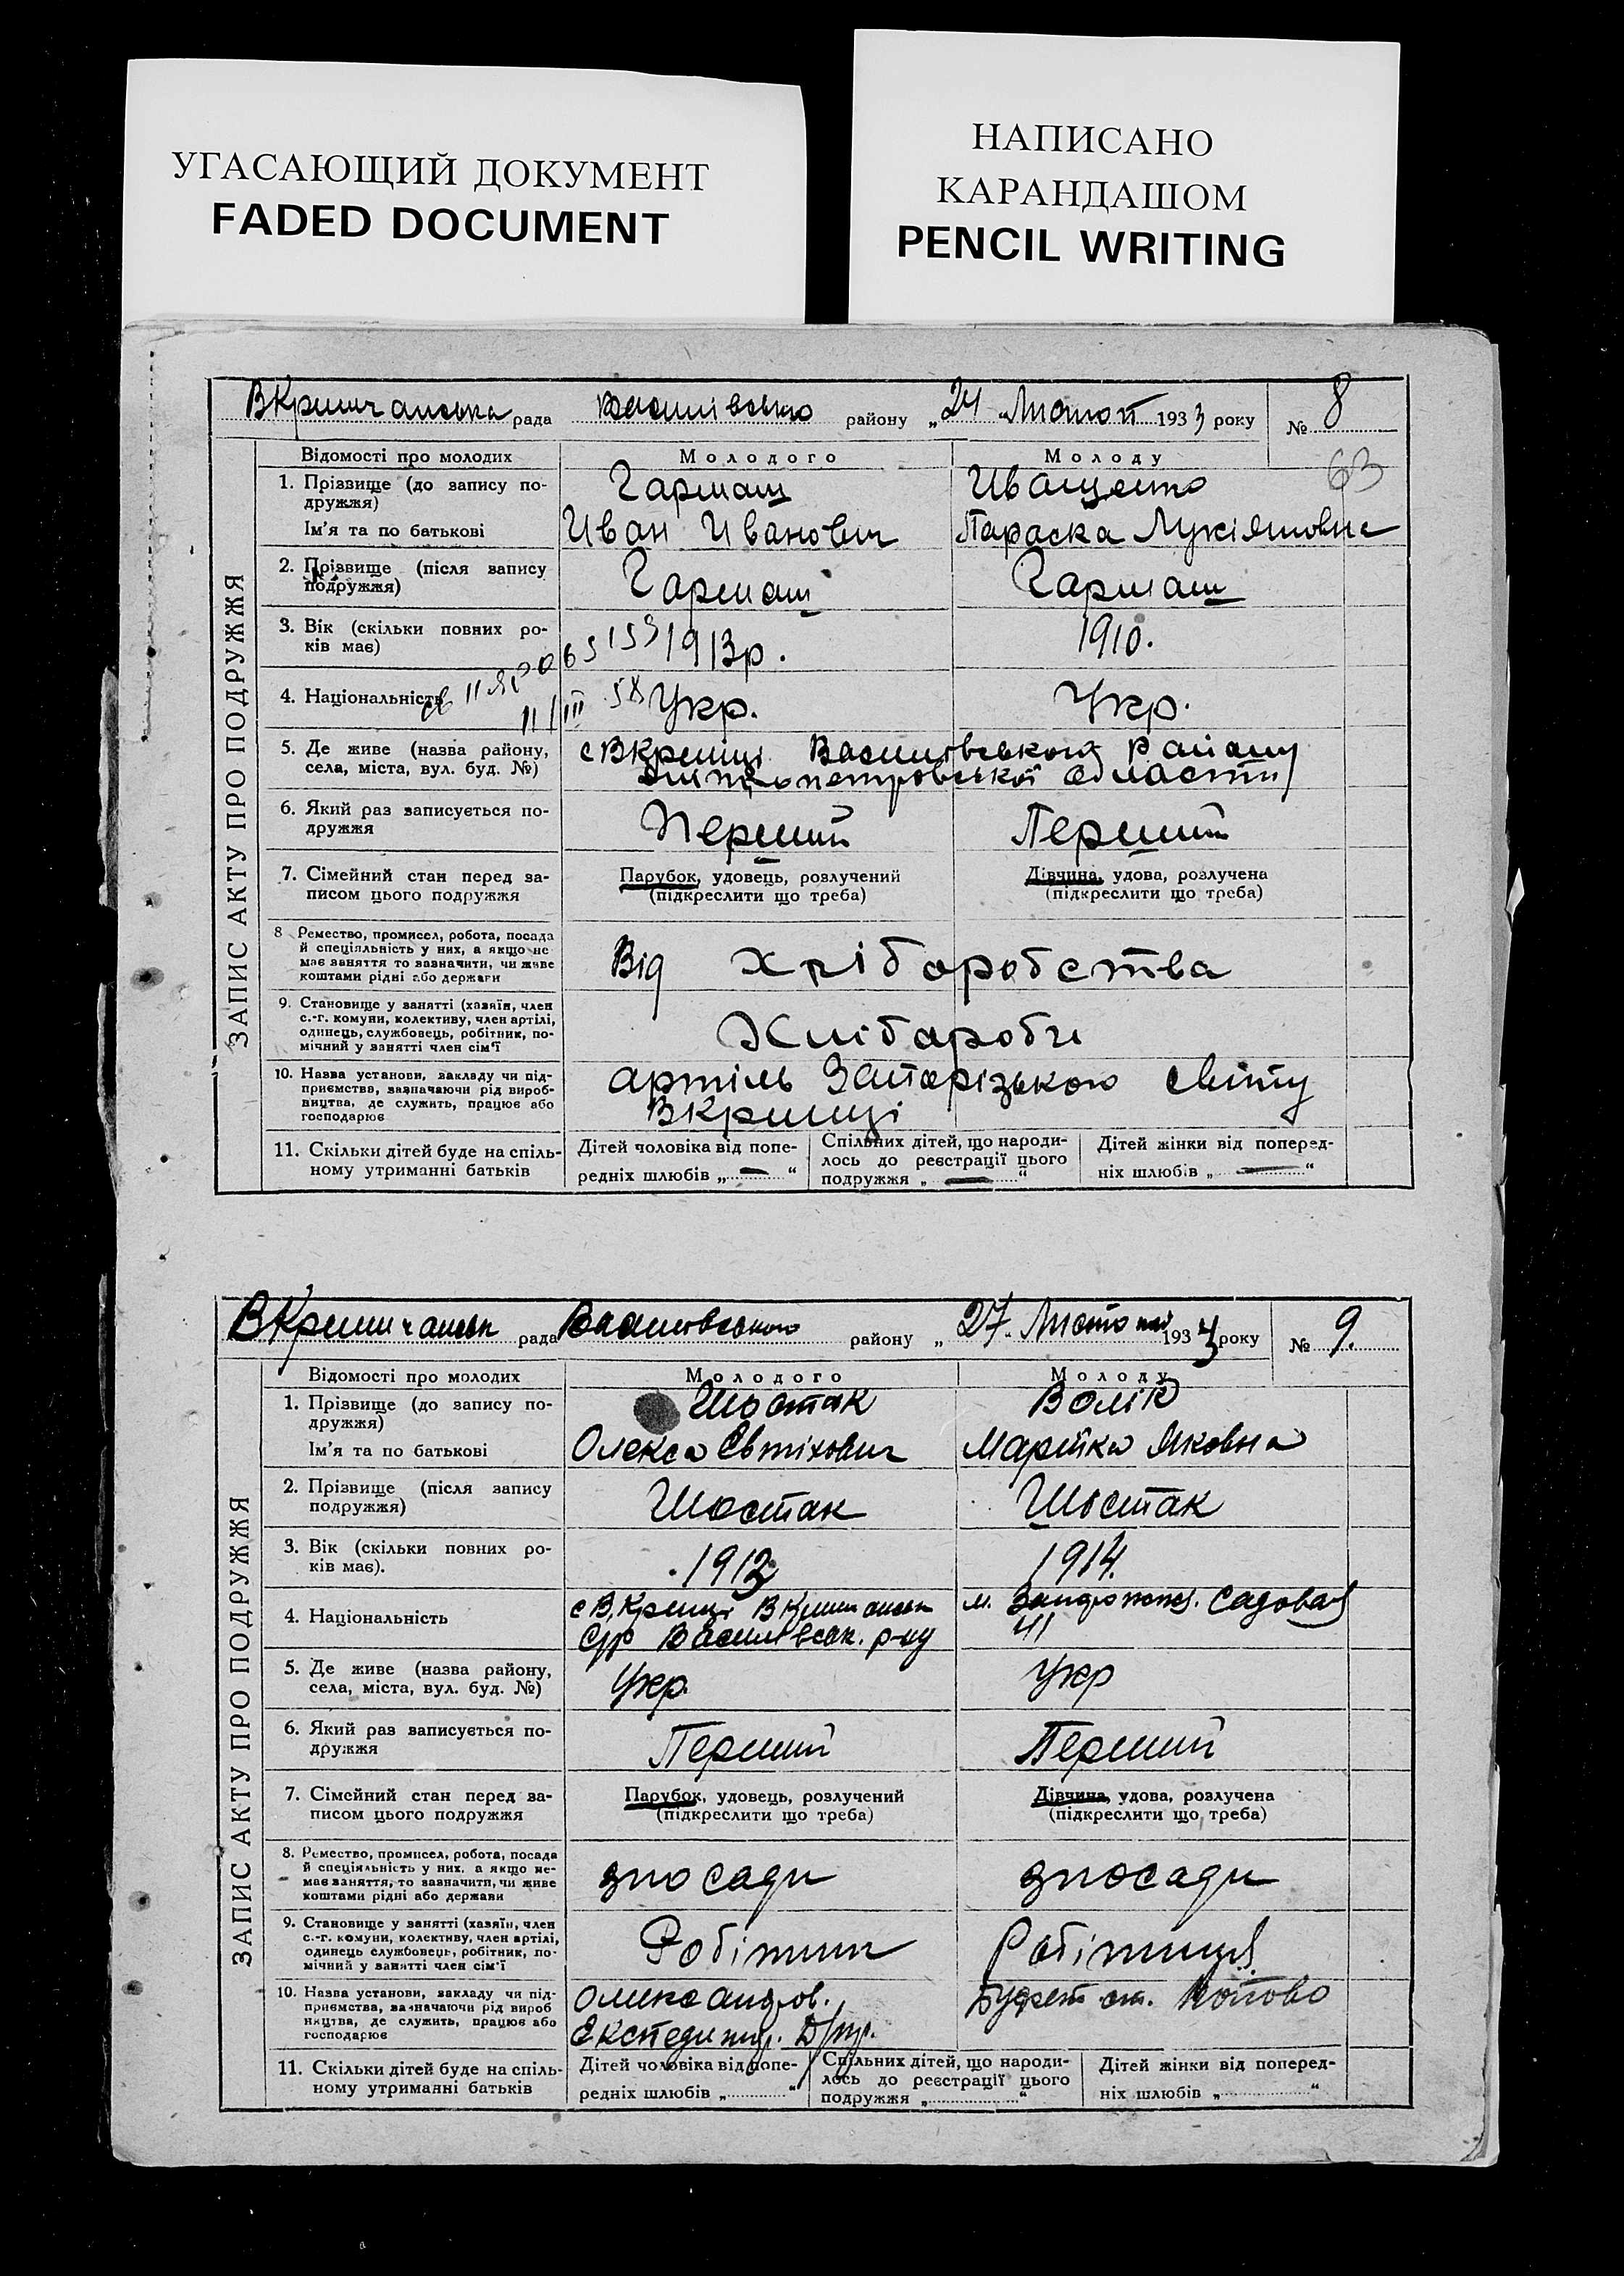 УГАСАЮЩИЙ ДОКУМЕНТ
FADED DOCUMENT
НАПИСАНО
КАРАНДАШОМ
PENCIL WRITING
ВКринчанська рада Василівсько району „24 Листоп 1933 року № 8
63
ЗАПИС АКТУ ПРО ПОДРУЖЖЯ
Відомості про молодих Молодого Молоду
1. Прізвище (до запису подружжя) Гармаш Иващенко
Ім'я та по батькові Иван Иванович Параска Лукіяновна
2. Прізвище (після запису подружжя) Гармаш Гармаш
3. Вік (скільки повних років має) 1913р. 1910.
4. Національність Укр. Укр.
11/III 58
5. Де живе (назва району, села, міста, вул. буд. №) с ВКринці Василівського району
Дніпропетровської області
6. Який раз записується подружжя Перший Перший
7. Сімейний стан перед записом цього подружжя Парубок, удовець, розлучений Дівчина, удова, розлучена
(підкреслити що треба) (підкреслити що треба)
8 Ремество, промисел, робота, посада
й спеціяльність у них, а якщо не
має заняття то зазначити, чи живе
коштами рідні або держаги
Від хліборобства
9. Становище у занятті (хазяїн, член
с.-г. комуни, колективу, член артілі,
одинець, службовець, робітник, помічний у занятті член сім'ї
Хлібароби
10. Назва установи, закладу чи підприємства, зазначаючи рід виробництва, де служить, працює або
господарює
артіль Запорізького світу
ВКринці
11. Скільки дітей буде на спільному утриманні батьків
Дітей чоловіка від попередніх шлюбів „—“
Спільних дітей, що народилось до реєстрації цього
подружжя „—“
Дітей жінки від попередніх шлюбів „—“
ВКринчанськ рада Василівського району „27. Листопад 1933 року № 9.
ЗАПИС АКТУ ПРО ПОДРУЖЖЯ
Відомості про молодих Молодого Молоду
1. Прізвище (до запису подружжя) Шостак Волік
Ім'я та по батькові Олекса Євтіхович Марійка Яковна
2. Прізвище (після запису подружжя) Шостак Шостак
3. Вік (скільки повних років має). 1913 1914.
4. Національність с В,Кринці ВКринчанськ м. Садовая
Василівськ. р-ну 41
5. Де живе (назва району, села, міста, вул. буд. №) Укр. Укр
6. Який раз записується подружжя Перший Перший
7. Сімейний стан перед записом цього подружжя Парубок, удовець, розлучений Дівчина, удова, розлучена
(підкреслити що треба) (підкреслити що треба)
8. Ремество, промисел, робота, посада
й спеціяльність у них, а якщо немає заняття, то зазначити, чи живе
коштами рідні або держави
зпосади зпосади
9. Становище у занятті (хазяїн, член
с.-г. комуни, колективу, член артілі,
одинець службовець, робітник, помічний у занятті член сім'ї
Робітник Робітниця
10. Назва установи, закладу чи підприємства, зазначаючи рід виробництва, де служить, працює або
господарює
Олександров. Буфет ст. Попово
Експедиц.
11. Скільки дітей буде на спільному утриманні батьків
Дітей чоловіка від попередніх шлюбів „ “
Спільних дітей, що народилось до реєстрації цього
подружжя „ “
Дітей жінки від попередніх шлюбів „ “